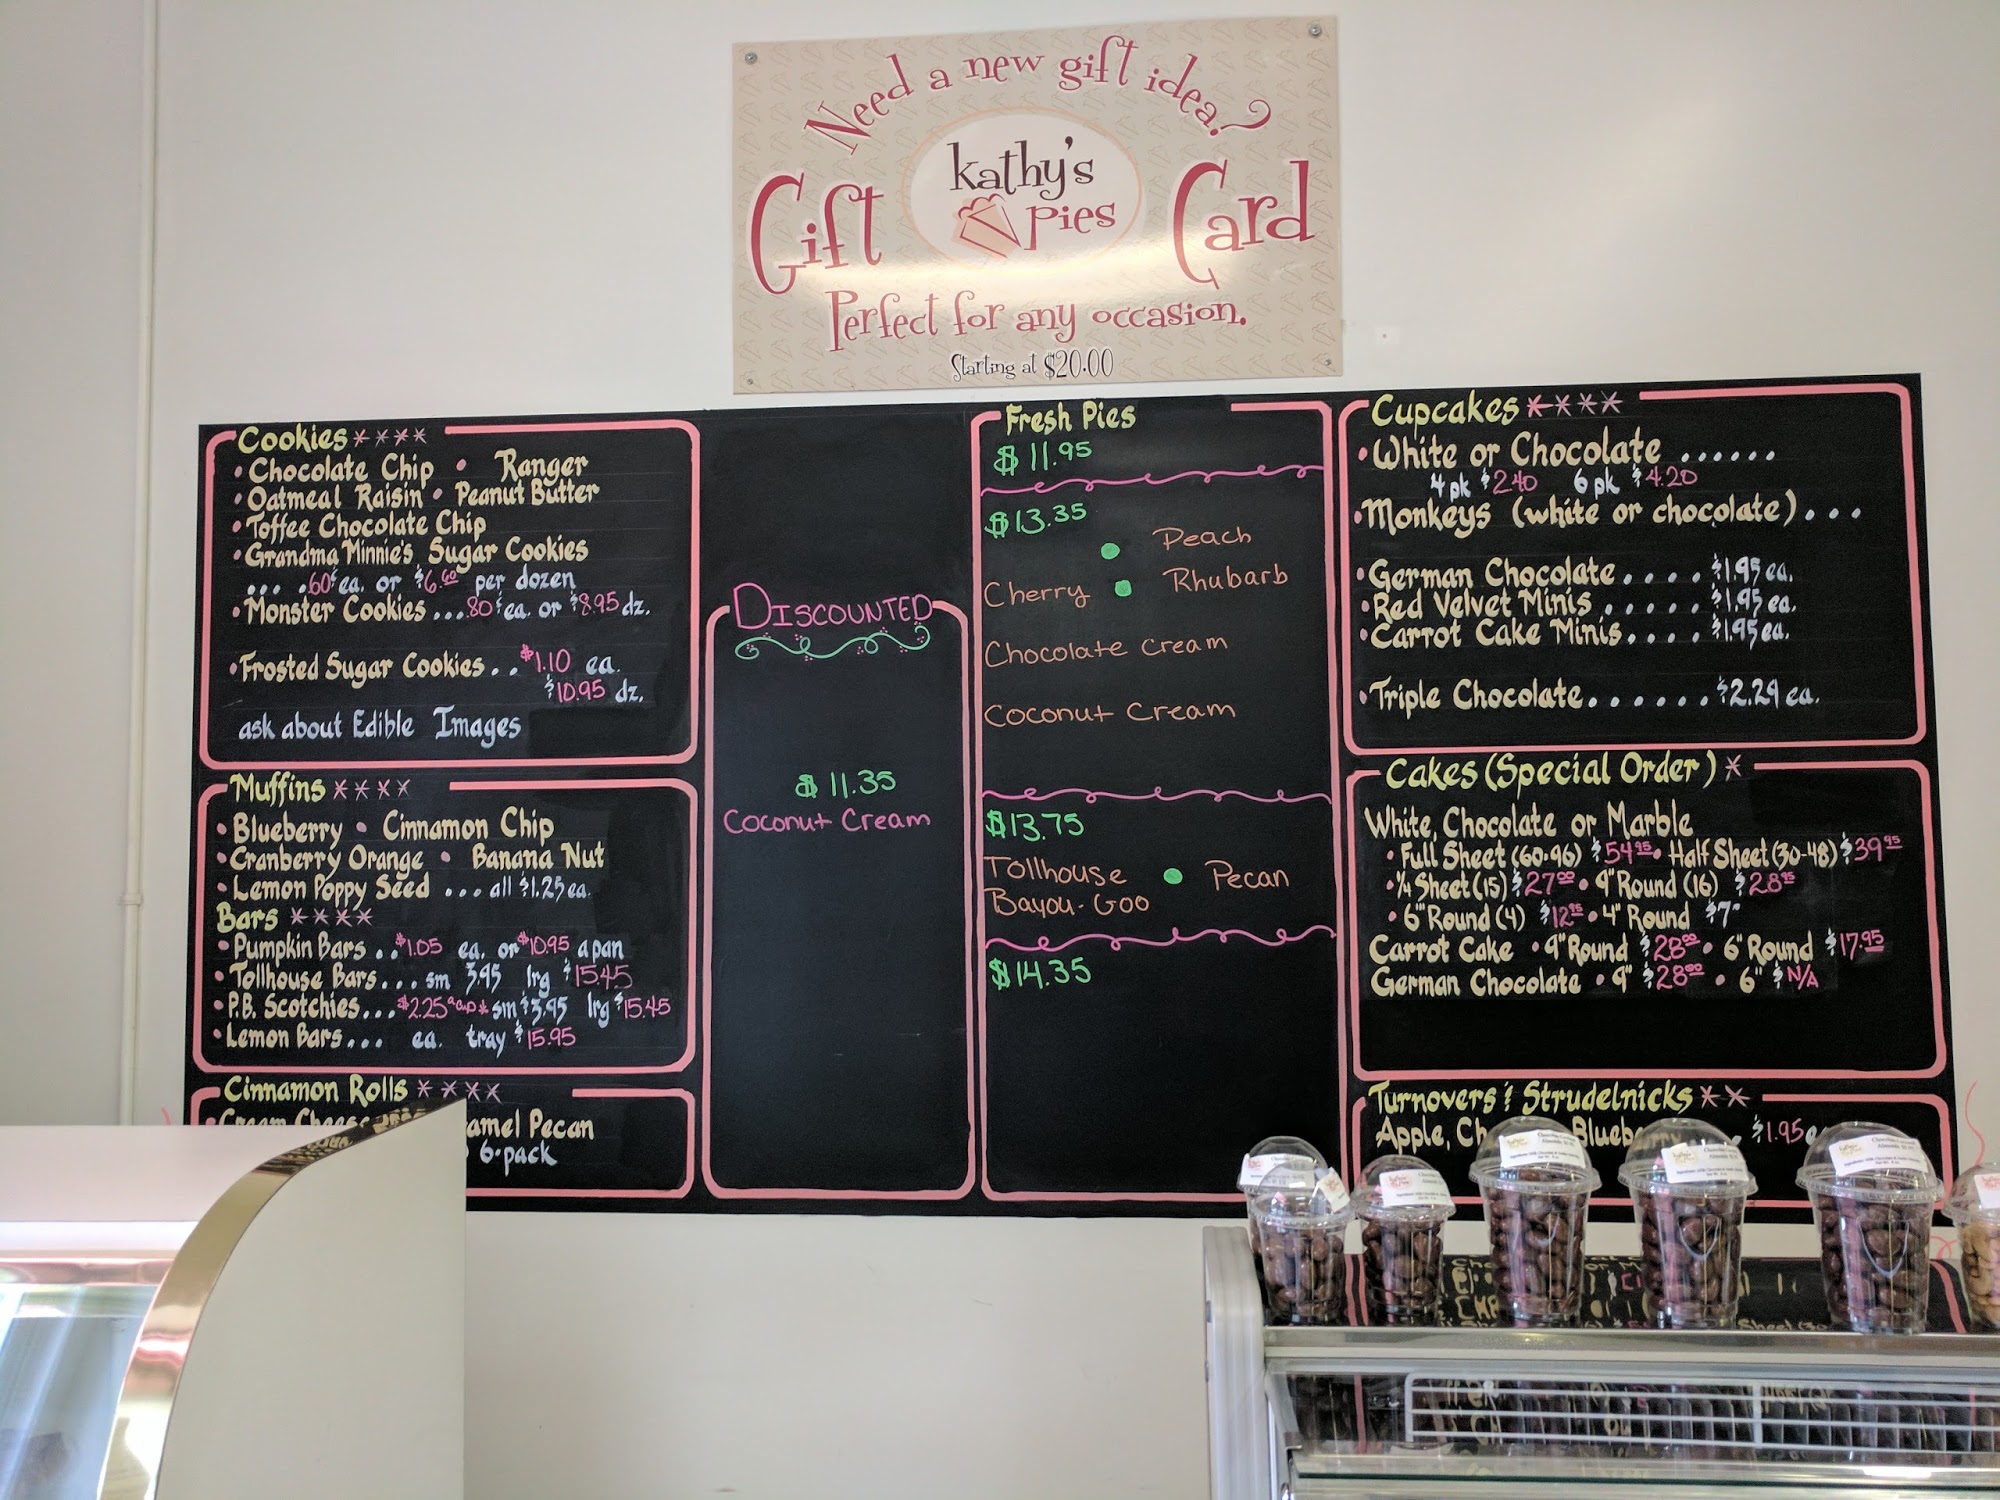 Need a new gift idea?
Gift Card
kathy's
pies
Perfect for any occasion.
Starting at $20.00
Cookies ****
• Chocolate Chip • Ranger
• Oatmeal Raisin • Peanut Butter
• Toffee Chocolate Chip
• Grandma Minnie's Sugar Cookies
... .60¢ ea. or $6.60 per dozen
• Monster Cookies ... .80¢ ea. or $8.95 dz.
• Frosted Sugar Cookies .. $1.10 ea.
$10.95 dz.
ask about Edible Images
Muffins ****
• Blueberry • Cinnamon Chip
• Cranberry Orange • Banana Nut
• Lemon Poppy Seed ... all $1.25 ea.
Bars ****
• Pumpkin Bars .. $1.05 ea. or $10.95 a pan
• Tollhouse Bars... sm 3.95 lrg $15.45
• P.B. Scotchies... $2.25 sm $3.95 lrg $15.45
• Lemon Bars... ea. tray $15.95
Cinnamon Rolls ****
• Cream Cheese
amel Pecan
6-pack
Discounted
$11.35
Coconut Cream
Fresh Pies
$11.95
$13.35
• Peach
Cherry • Rhubarb
Chocolate Cream
Coconut Cream
$13.75
Tollhouse • Pecan
Bayou-Goo
$14.35
Cupcakes ****
• White or Chocolate ......
4 pk $2.40 6 pk $4.20
• Monkeys (white or chocolate) ...
• German Chocolate .... $1.95 ea.
• Red Velvet Minis ..... $1.95 ea.
• Carrot Cake Minis.... $1.95 ea.
• Triple Chocolate...... $2.29 ea.
Cakes (Special Order) *
White, Chocolate or Marble
• Full Sheet (60-96) $54.95 • Half Sheet (30-48) $39.95
• ¼ Sheet (15) $27.00 • 9" Round (16) $28.95
• 6" Round (4) $12.95 • 4" Round $7
Carrot Cake • 9" Round $28.00 • 6" Round $17.95
German Chocolate • 9" $28.00 • 6" $N/A
Turnovers & Strudelnicks **
Apple, Ch Blueberry $1.95 ea